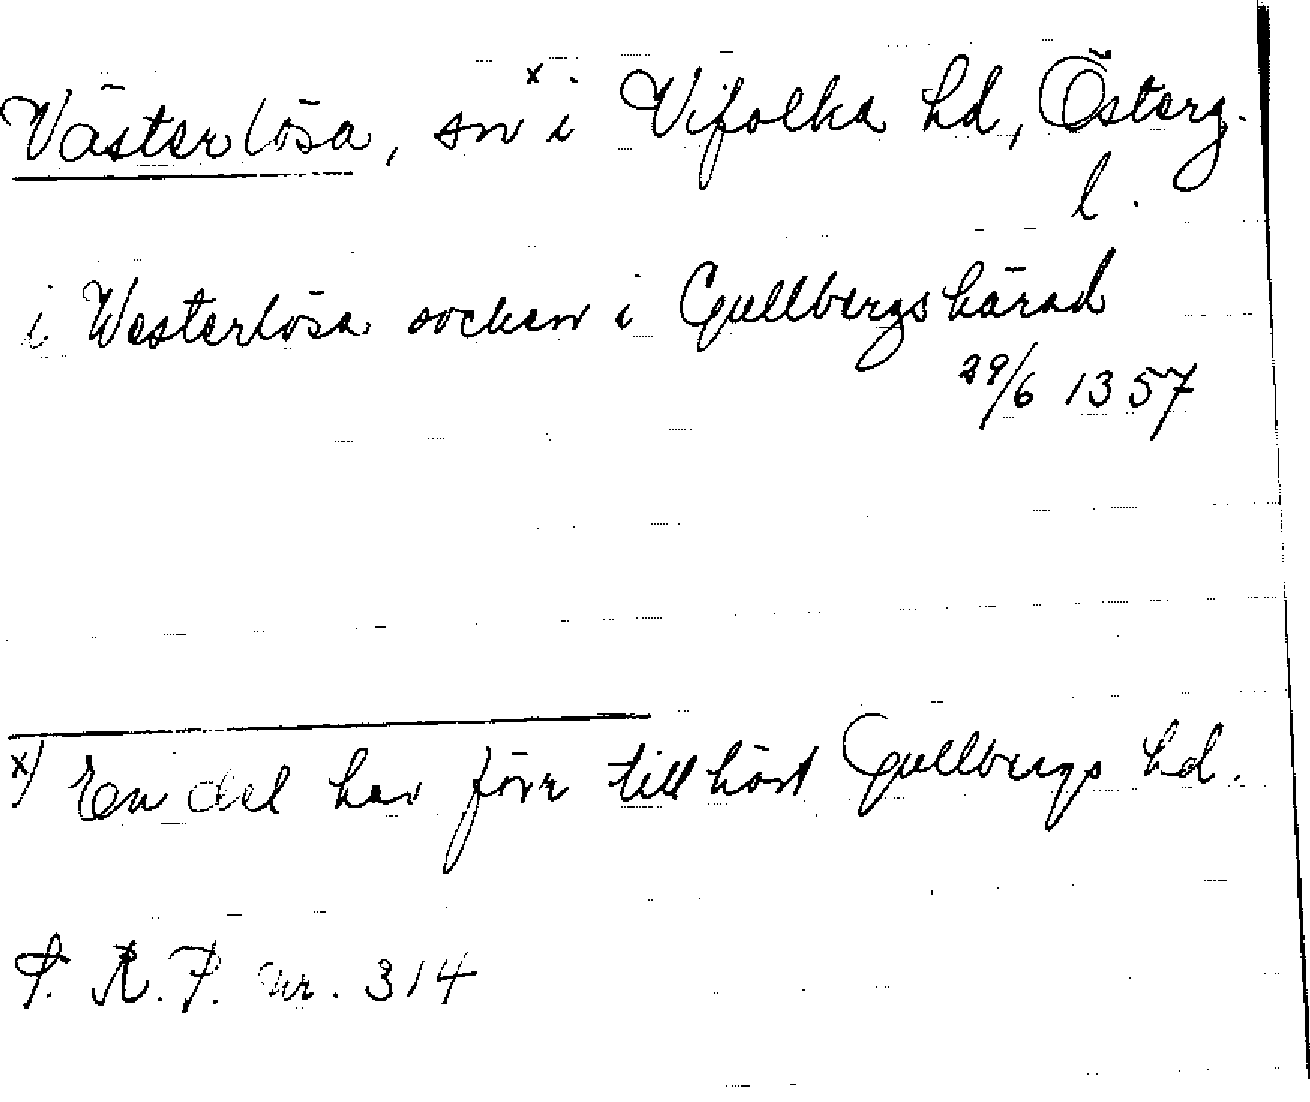 Västerlösa, sn x i Vifolka hd, Österg.
l.
i Westerlösa socken i Gullbergs härad
29/6 1357
x) En del har förr tillhört Gullbergs hd.
S. R. P. nr. 314